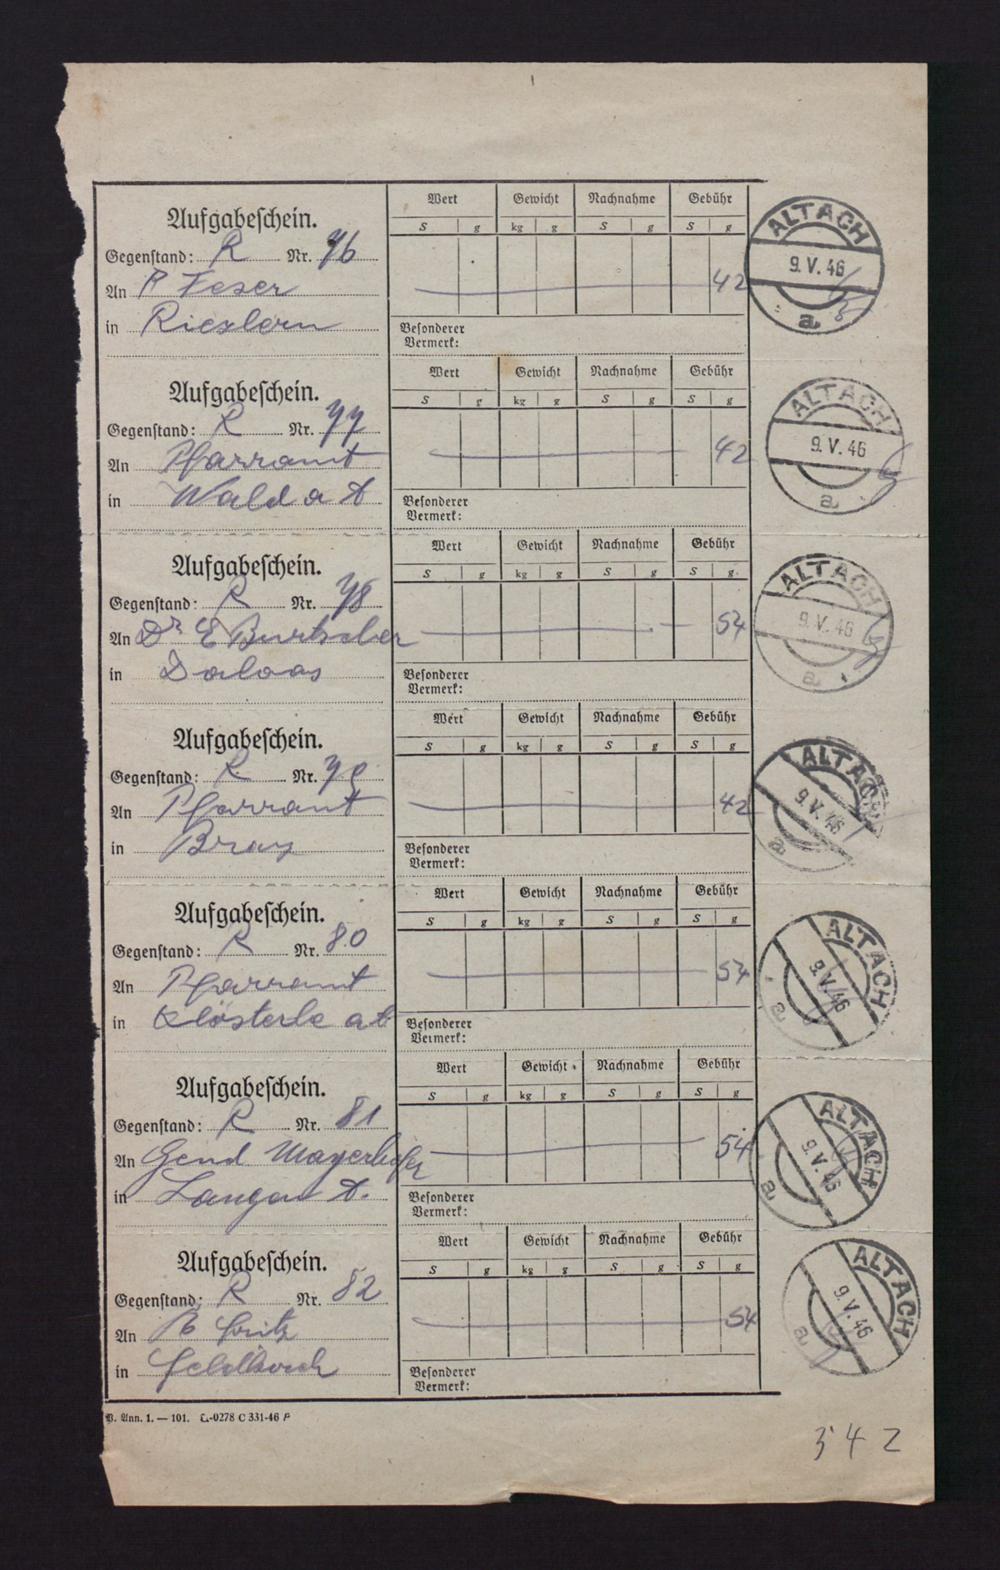 Aufgabeschein.
Gegenstand: R Nr. 76
An R Feser
in Riezlern
Wert Gewicht Nachnahme Gebühr
S g kg g S g S g
42
Besonderer
Vermerk:
ALTACH
9.V.46
a
Aufgabeschein.
Gegenstand: R Nr. 77
An Pfarramt
in Wald a A
Wert Gewicht Nachnahme Gebühr
S g kg g S g S g
42
Besonderer
Vermerk:
ALTACH
9.V.46
a
Aufgabeschein.
Gegenstand: R Nr. 78
An Dr E Burtscher
in Dalaas
Wert Gewicht Nachnahme Gebühr
S g kg g S g S g
54
Besonderer
Vermerk:
ALTACH
9.V.46
a
Aufgabeschein.
Gegenstand: R Nr. 79
An Pfarramt
in Braz
Wert Gewicht Nachnahme Gebühr
S g kg g S g S g
42
Besonderer
Vermerk:
ALTACH
9.V.46
a
Aufgabeschein.
Gegenstand: R Nr. 80
An Pfarramt
in Klösterle ab
Wert Gewicht Nachnahme Gebühr
S g kg g S g S g
54
Besonderer
Vermerk:
ALTACH
9.V.46
a
Aufgabeschein.
Gegenstand: R Nr. 81
An Gend Mayerhofer
in Langen A.
Wert Gewicht Nachnahme Gebühr
S g kg g S g S g
54
Besonderer
Vermerk:
ALTACH
9.V.46
a
Aufgabeschein.
Gegenstand: R Nr. 82
An
in Feldkirch
Wert Gewicht Nachnahme Gebühr
S g kg g S g S g
54
Besonderer
Vermerk:
ALTACH
9.V.46
a
P. Ann. 1. — 101. C 331-46
342